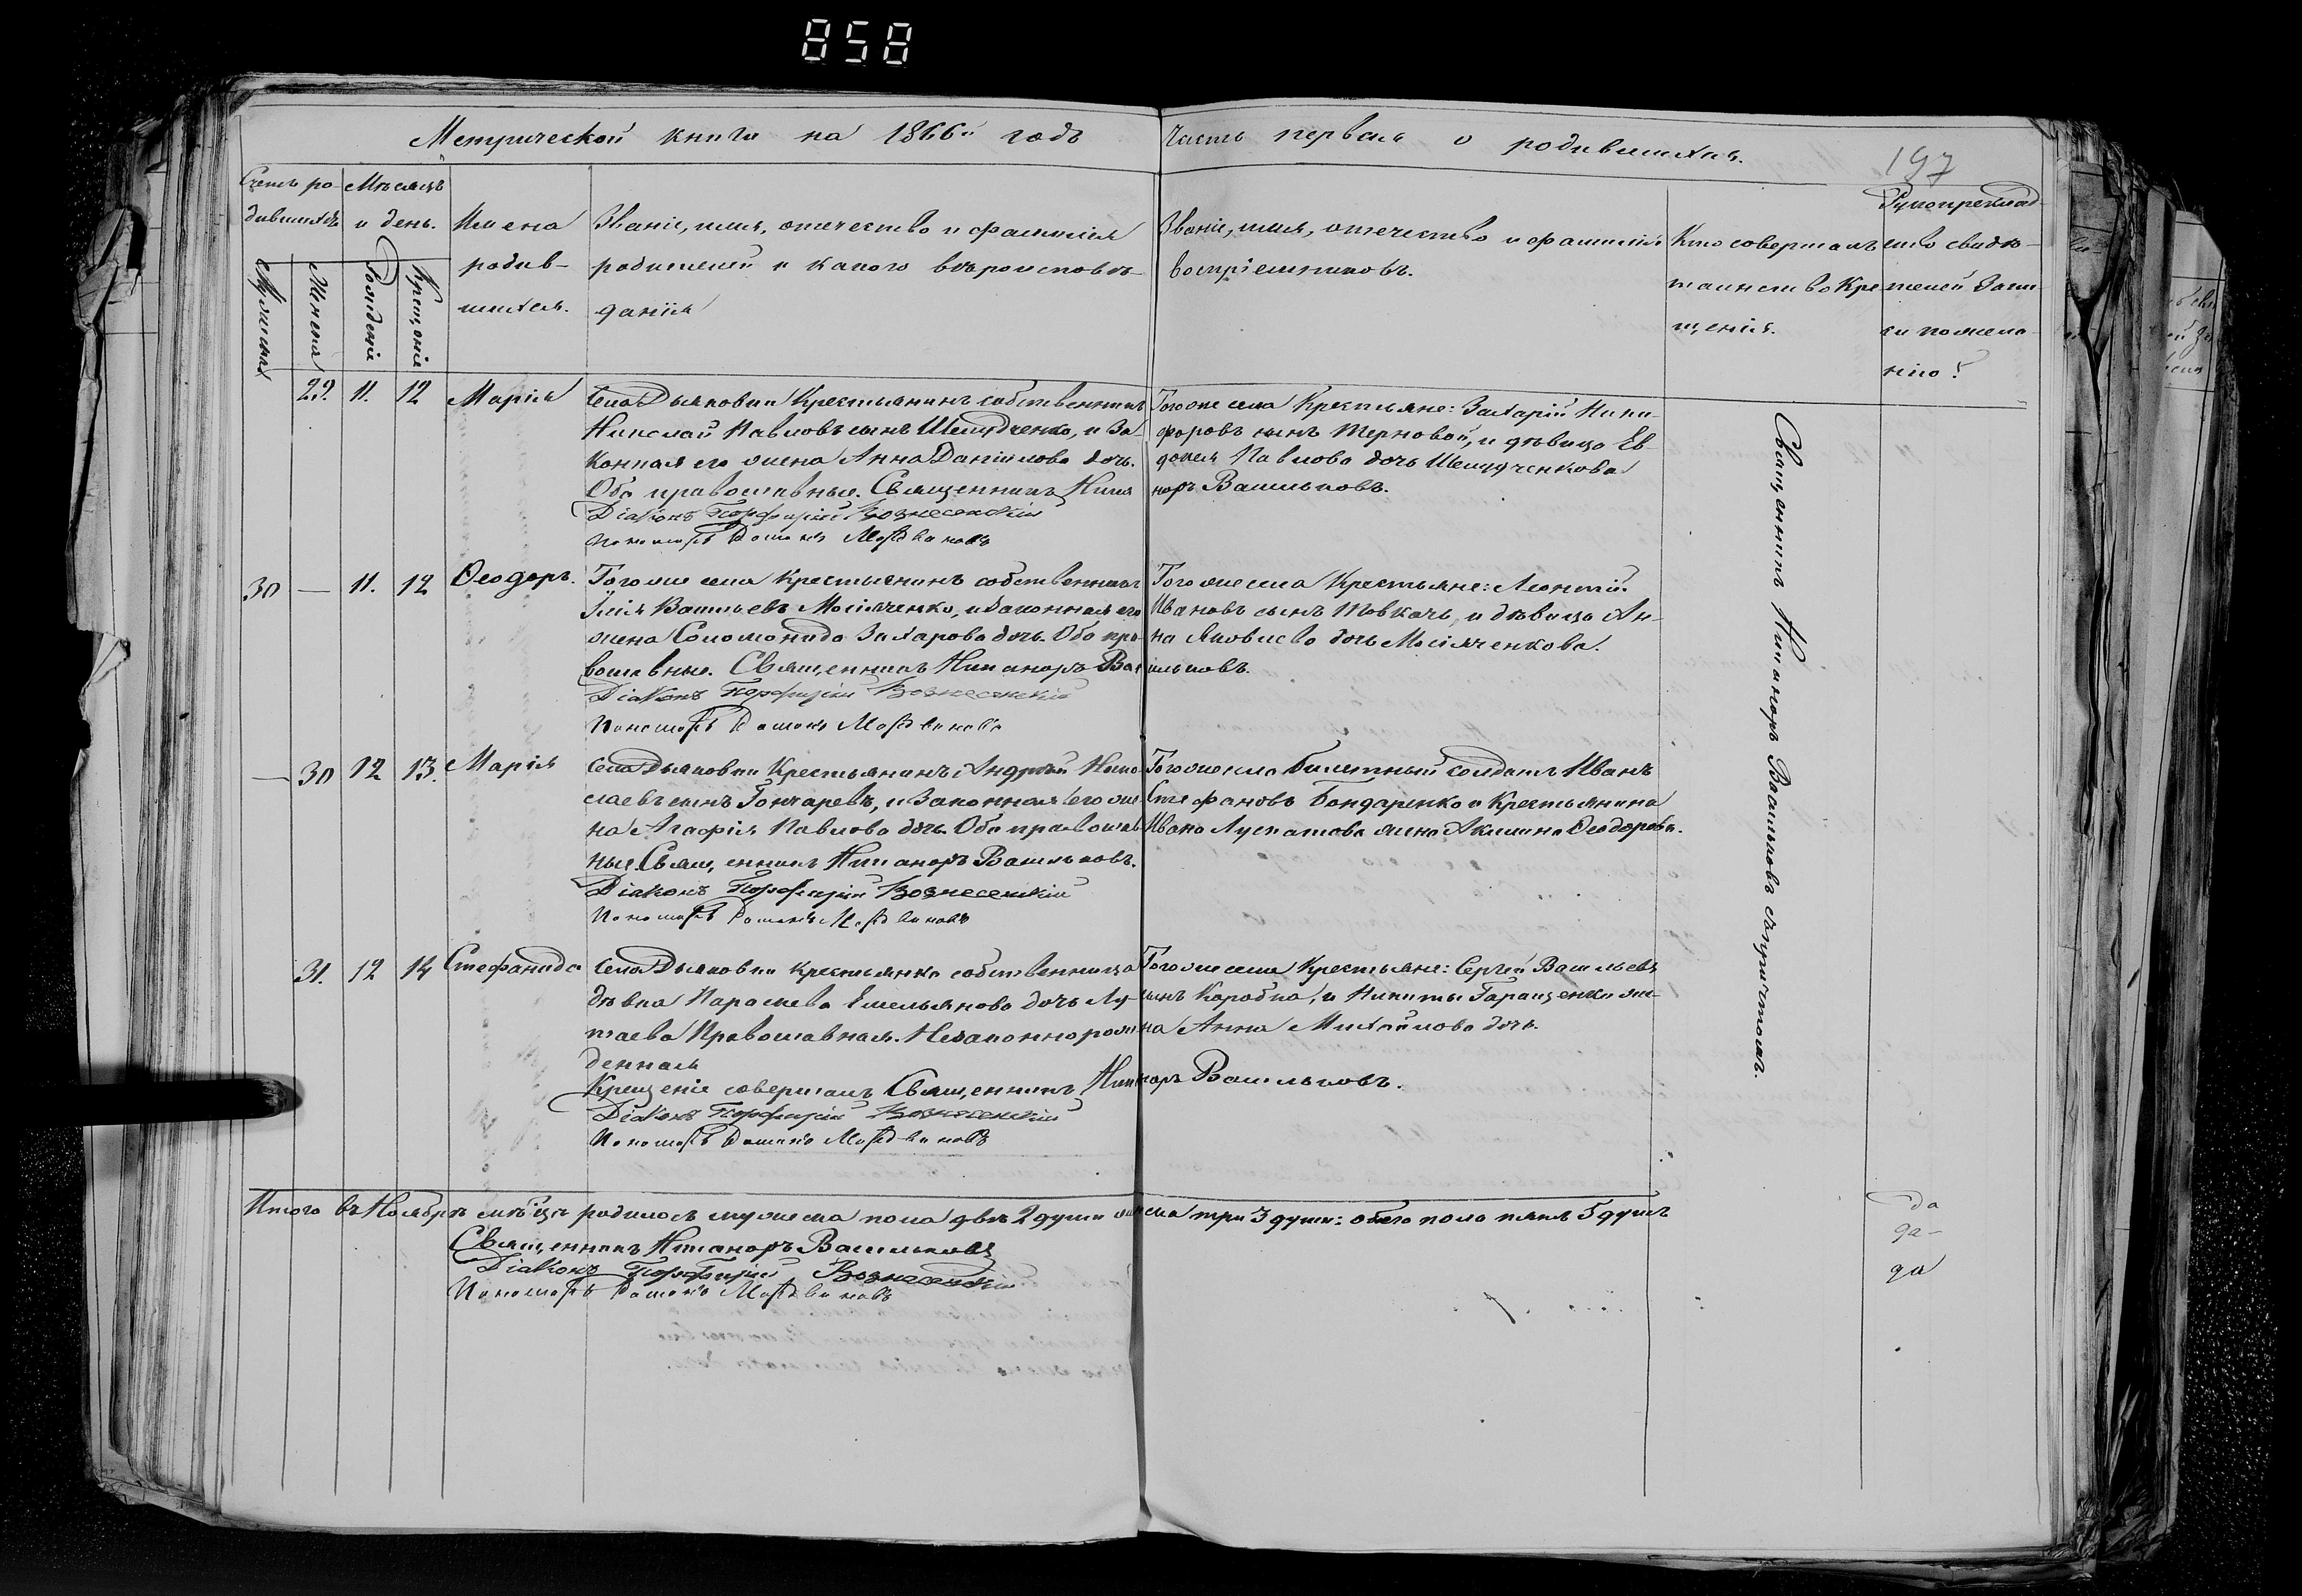 858
Метрической книги на 1866й годъ
Часть первая о родившихся.
197
Счетъ ро-
дившихся
Мужеска
Женска
Мѣсяцъ
и день.
Рожденіе
Крещеніе
Имена
родив-
шихся.
Званіе, имя, отечество и фамилія
родителей и какого вѣроисповѣ-
данія
Званіе, имя, отечество и фамилія
воспріемниковъ.
Кто совершалъ
таинство Кре
щенія.
Рукоприклад-
ство свидѣ-
телей запи
си по жела
нію:
29. 11. 12 Марія
Села Дьяковки Крестьянинъ собственникъ
Николай Павловъ сынъ Шемудченко, и За-
конная его жена Анна Даніилова дочь.
Оба православные. Священникъ Ника
норъ Васильковъ.
Діаконъ Порфирій Вознесенскій
Пономарь Романъ Мордвиновъ
Того же села Крестьяне: Захарій Ники-
форовъ сынъ Терновой, и дѣвица Ев-
докія Павлова дочь Шемудченкова
30 — 11. 12 Ѳеодоръ.
Того же села Крестьянинъ собственникъ
Илія Васильевъ Мосіяченко, и Законная его
жена Соломонида Захарова дочь. Оба пра-
вославные. Священникъ Никаноръ Вас
ильковъ.
Діаконъ Порфирій Вознесенскій
Пономарь Романъ Мордвиновъ
Того же села Крестьяне: Леонтій
Ивановъ сынъ Товкачь, и дѣвица Ан-
на Яковлева дочь Мосіяченкова.
— 30 12 13. Марія
Села Дьяковки Крестьянинъ Андрей Нико
лаевъ сынъ Гончаревъ, и Законная его же
на Агафія Павлова дочь. Оба православ
ные. Священникъ Никаноръ Васильковъ.
Діаконъ Порфирій Вознесенскій
Пономарь Романъ Мордвиновъ
Того же села билетный солдатъ Иванъ
Стефановъ Бондаренко и Крестьянина
Ивана Луспатова жена Акилина Ѳеодорова.
31. 12 14 Стефанида
Села Дьяковки крестьянка собственница
дѣвка Параскева Емельянова дочь Лу-
таева Православная. Незаконнорож
денная
Крещеніе совершалъ Священникъ Никаноръ Васильковъ.
Діаконъ Порфирій Вознесенскій
Пономарь Романъ Мордвиновъ
Того же села Крестьяне: Сергѣй Васильевъ
сынъ Коробка, и Никиты Геращенки же-
на Анна Михайлова дочь.
Священникъ Никаноръ Васильковъ съ причтомъ.
Итого въ Ноябрѣ мѣсяцѣ родилось мужеска пола двѣ 2 души женска три 3 души: обоего пола пять 5 душъ
Священникъ Никаноръ Васильковъ
Діаконъ Порфирій Вознесенскій
Пономарь Романъ Мордвиновъ
да
да-
да